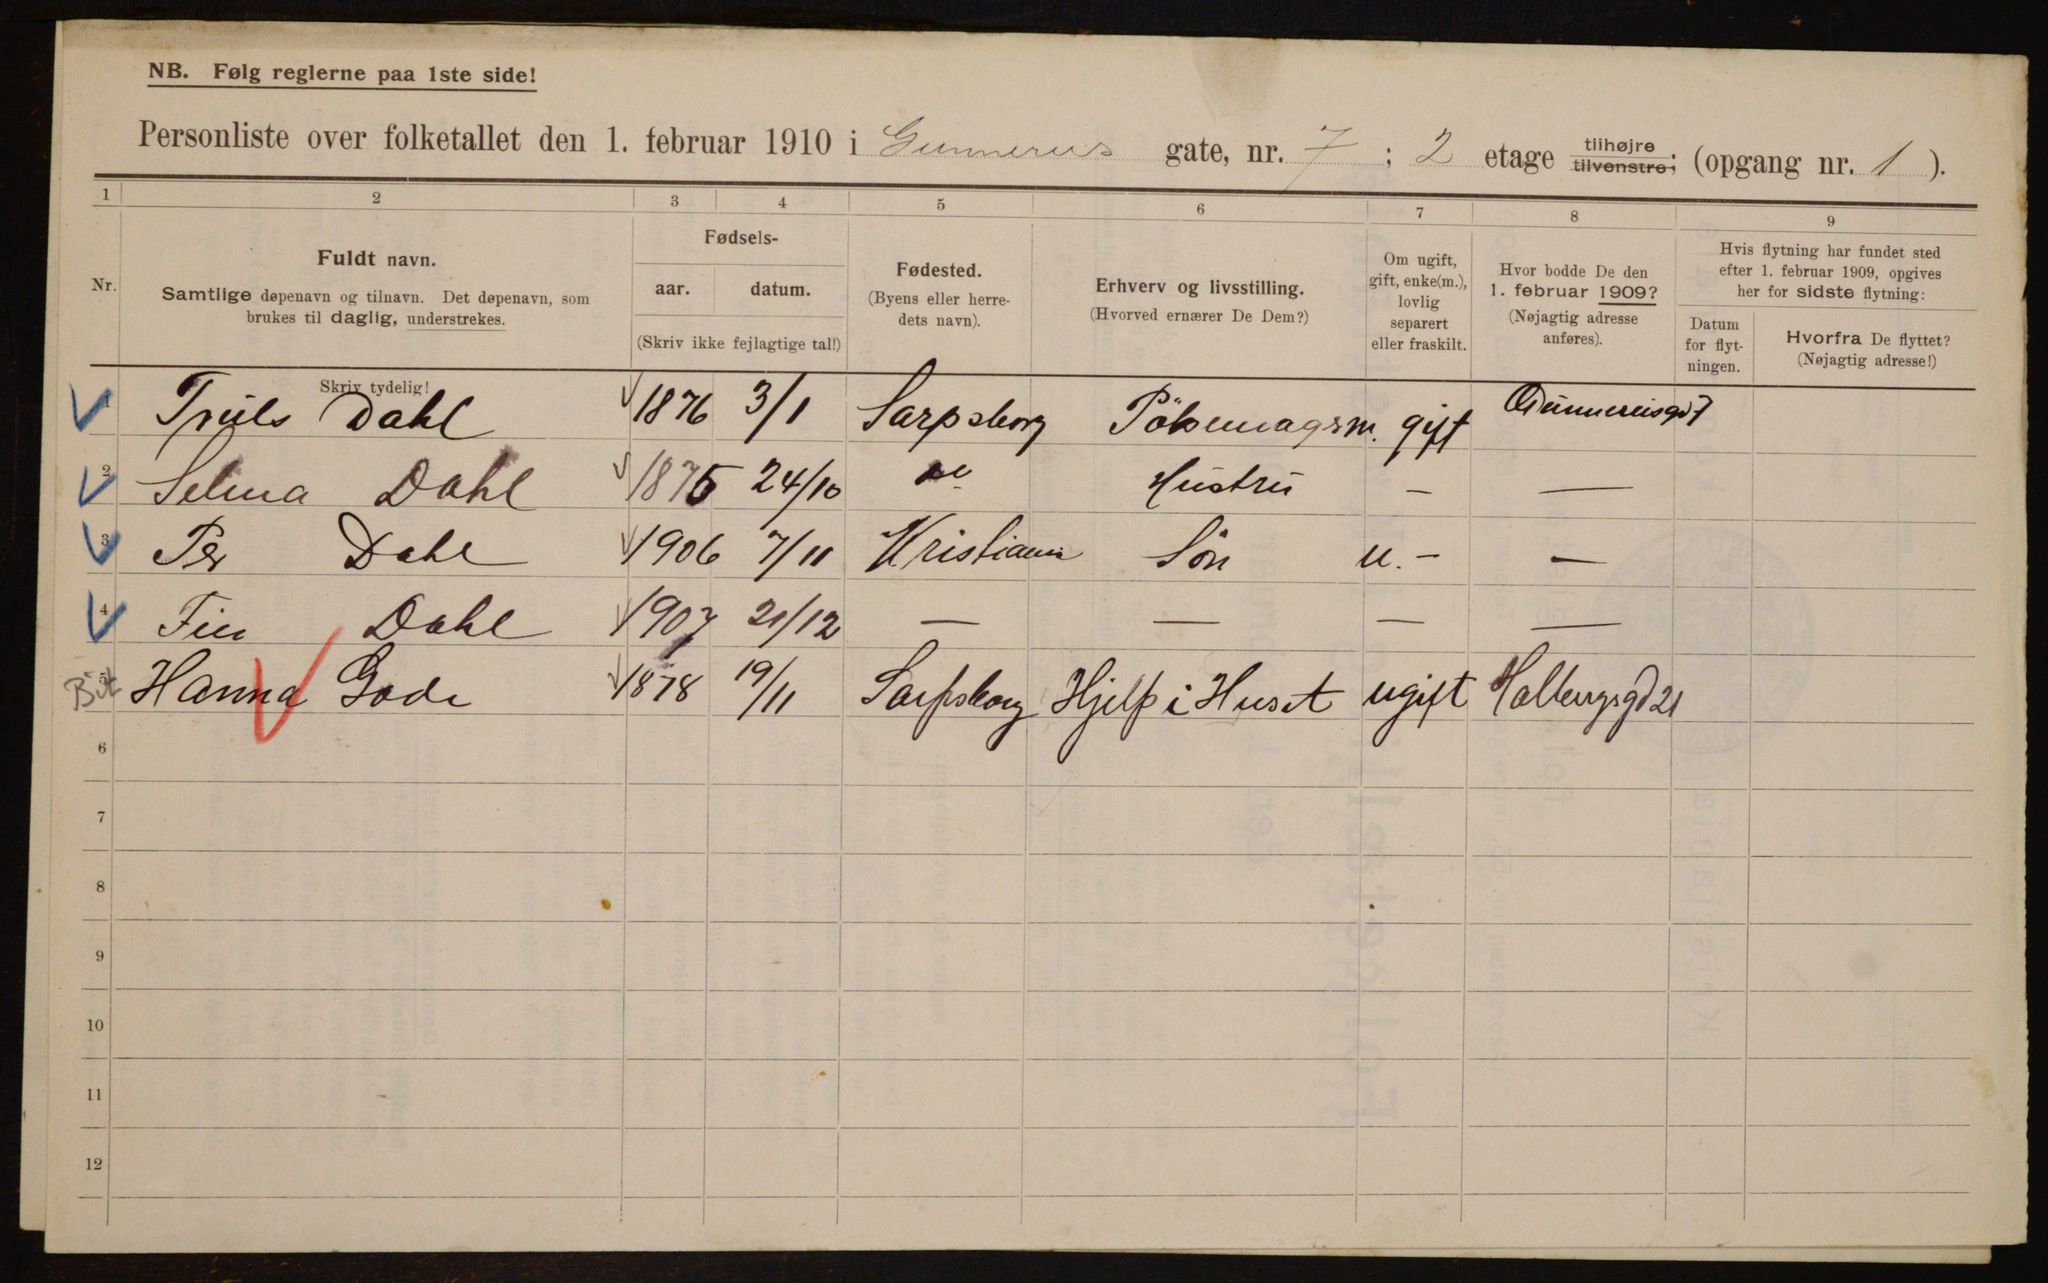 NB. Følg reglerne paa 1ste side!
Personliste over folketallet den 1. februar 1910 i Gunnerus gate, nr. 7 ; 2 etage tilhøjre tilvenstre; (opgang nr. 1 ).
1 2 3 4 5 6 7 8 9
Nr.
Fuldt navn.
Samtlige døpenavn og tilnavn. Det døpenavn, som
brukes til daglig, understrekes.
Skriv tydelig!
Fødsels-
aar. datum.
(Skriv ikke fejlagtige tal!)
Fødested.
(Byens eller herre-
dets navn).
Erhverv og livsstilling.
(Hvorved ernærer De Dem?)
Om ugift,
gift, enke(m.),
lovlig
separert
eller fraskilt.
Hvor bodde De den
1. februar 1909?
(Nøjagtig adresse
anføres).
Hvis flytning har fundet sted
efter 1. februar 1909, opgives
her for sidste flytning:
Datum
for flyt-
ningen.
Hvorfra De flyttet?
(Nøjagtig adresse!)
1 Truls Dahl 1876 3/1 Sarpsborg gift Gunnerusgd 7
2 Selma Dahl 1875 24/10 Hustru – —
3 Per Dahl 1906 7/11 Kristiania Sön u. – —
4 Fin Dahl 1907 21/12 — — — —
5 Hanna Gode 1878 19/11 Sarpsborg Hjelp i Huset ugift Holbergsgd 21
6
7
8
9
10
11
12